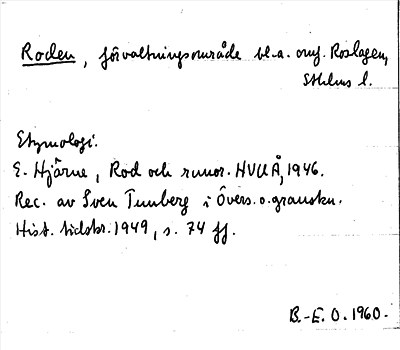 Roden, förvaltningsområde bl.a. omf. Roslagen,
Sthlms l.
Etymologi.
E. Hjärne, Rod och runor. HVUÅ, 1946.
Rec. av Sven Tunberg i Övers. o. granskn.
Hist. tidskr. 1949, s. 74 ff.
B.-E. O. 1960.